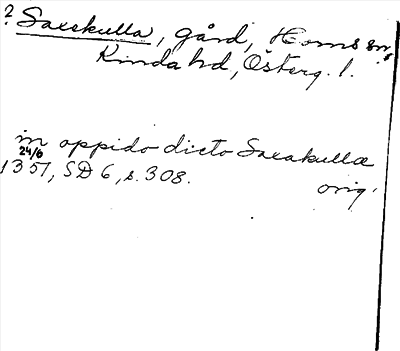 ? Saxekulla, gård, Horns sn,
Kinda hd, Österg. l.
in oppido dicto Saxakullæ
24/6
1351, SD 6, s. 308.
orig.